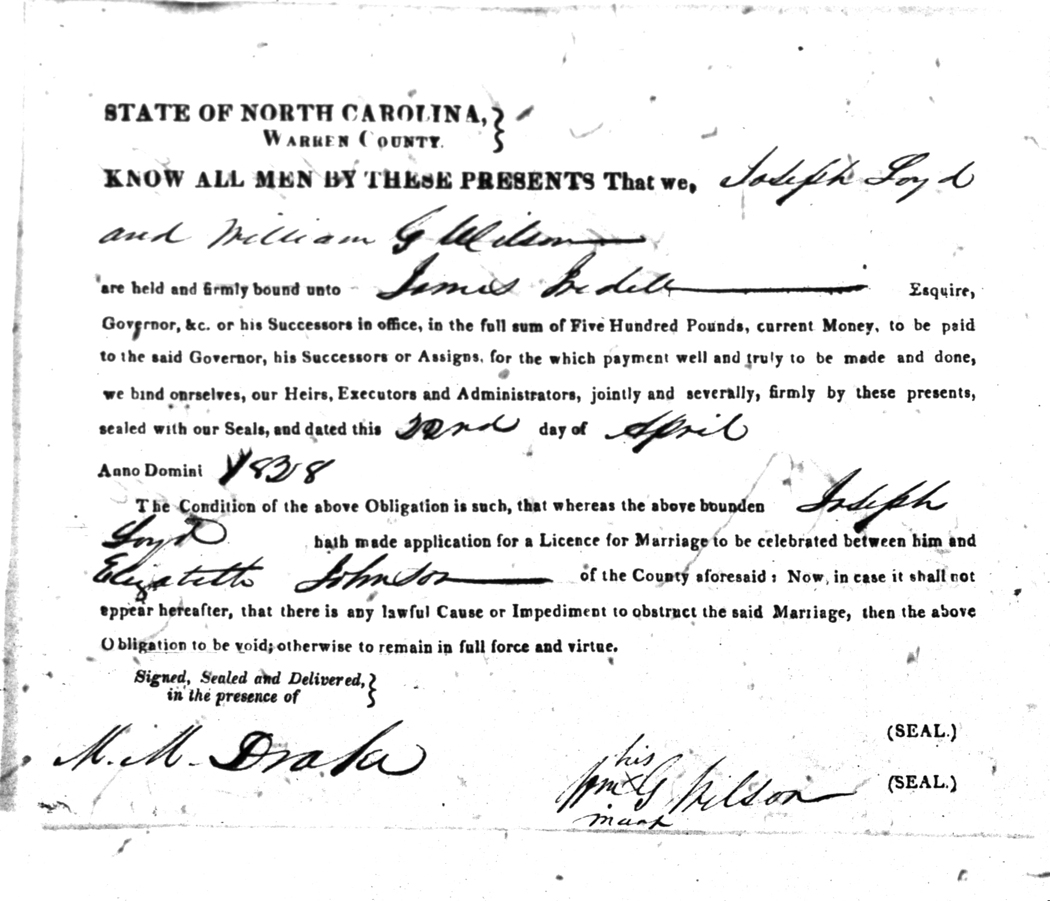 STATE OF NORTH CAROLINA,
WARREN COUNTY.
KNOW ALL MEN BY THESE PRESENTS That we, Joseph Loyd
and William G Wilson
are held and firmly bound unto James Iredell Esquire,
Governor, &c. or his Successors in office, in the full sum of Five Hundred Pounds, current Money, to be paid
to the said Governor, his Successors or Assigns, for the which payment well and truly to be made and done,
we bind onrselves, our Heirs, Executors and Administrators, jointly and severally, firmly by these presents,
sealed with our Seals, and dated this 22nd day of April
Anno Domini 1828
The Condition of the above Obligation is such, that whereas the above bounden Joseph
Loyd hath made application for a Licence for Marriage to be celebrated between him and
Elizabeth Johnson of the County aforesaid: Now, in case it shall not
appear hereafter, that there is any lawful Cause or Impediment to obstruct the said Marriage, then the above
Obligation to be void; otherwise to remain in full force and virtue.
Signed, Sealed and Delivered,
in the presence of
(SEAL.)
M. M. Drake
his
Wm x G Wilson (SEAL.)
mark